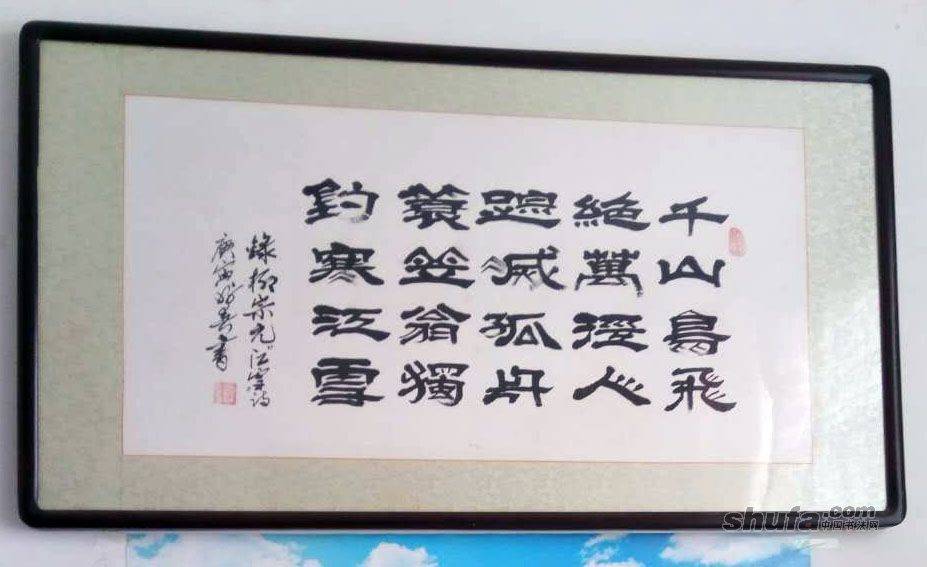 千山鳥飛
絶萬径人
踪滅孤舟
蓑笠翁獨
釣寒江雪
錄柳宗元江雪诗
庚寅書
shufa.com
中国书法网